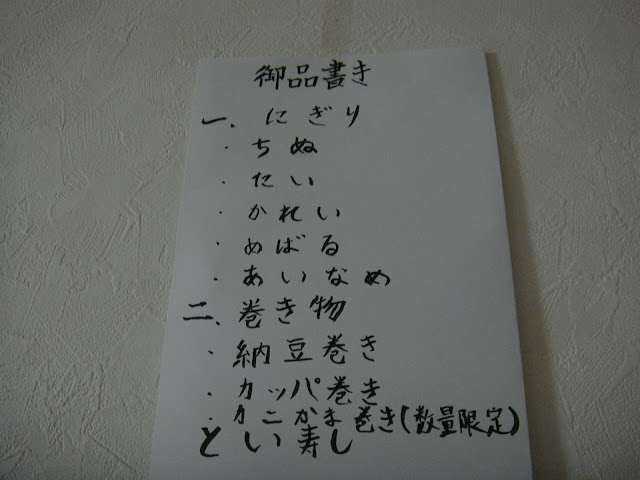 御品書き
一、にぎり
・ちぬ
・たい
・かれい
・めばる
・あいなめ
二、巻き物
・納豆巻き
・カッパ巻き
・カニかま巻き(数量限定)
とい寿し